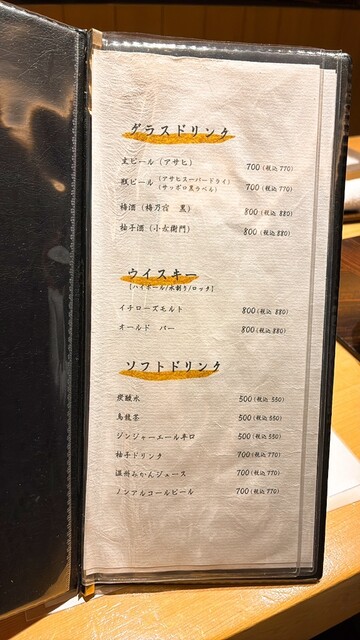 グラスドリンク
生ビール（アサヒ） 700(税込 770)
瓶ビール（アサヒスーパードライ）
（サッポロ黒ラベル） 700(税込 770)
梅酒（梅乃宿 黒） 800(税込 880)
柚子酒（小左衛門） 800(税込 880)
ウイスキー
【ハイボール/水割り/ロック】
イチローズモルト 800(税込 880)
オールド パー 800(税込 880)
ソフトドリンク
炭酸水 500(税込 550)
烏龍茶 500(税込 550)
ジンジャーエール辛口 500(税込 550)
柚子ドリンク 700(税込 770)
温州みかんジュース 700(税込 770)
ノンアルコールビール 700(税込 770)